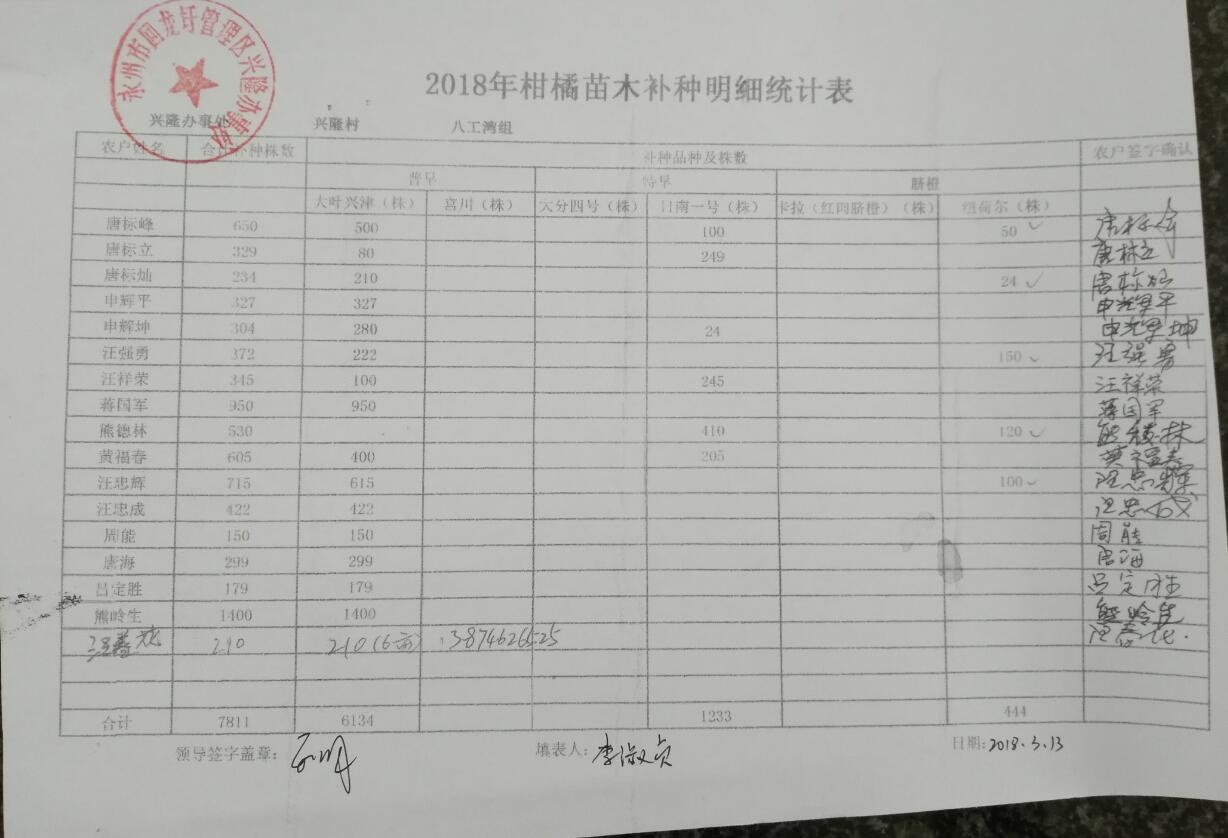 永州市回龙圩管理区兴隆办事处
2018年柑橘苗木补种明细统计表
兴隆办事处 兴隆村 八工湾组
农户姓名 合计补种株数 补种品种及株数 农户签字确认
普早 特早 脐橙
大叶兴津（株） 宫川（株） 大分四号（株） 日南一号（株） 卡拉（红肉脐橙）（株） 纽荷尔（株）
唐标峰 650 500 100 50
唐标立 329 80 249 唐标立
唐标灿 234 210 24 唐标灿
申辉平 327 327 申辉平
申辉坤 304 280 24 申辉坤
汪强勇 372 222 150 汪强勇
汪祥荣 345 100 245 汪祥荣
蒋国军 950 950 蒋国军
熊德林 530 410 120 熊德林
黄福春 605 400 205 黄福春
汪忠辉 715 615 100 汪忠辉
汪忠成 422 422 汪忠成
周能 150 150 周能
唐海 299 299 唐海
吕定胜 179 179 吕定胜
熊岭生 1400 1400 熊岭生
210 210(6亩) 13874626525
合计 7811 6134 1233 444
领导签字盖章： 填表人：李淑贞 日期：2018.3.13